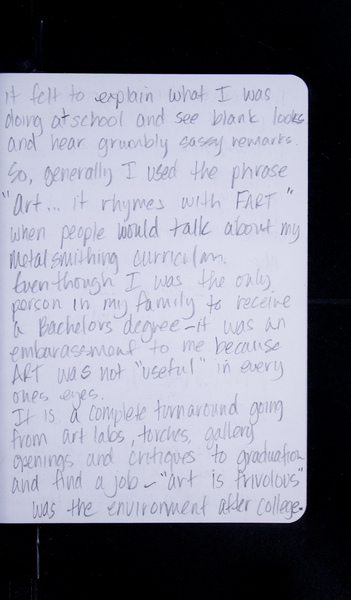 it felt to explain what I was
doing at school and see blank looks
and hear grumbly sassy remarks.
So, generally I used the phrase
"Art... it rhymes with FART"
when people would talk about my
metalsmithing curriculum.
Eventhough I was the only
person in my family to receive
a Bachelors degree - it was an
embarassment to me because
ART was not "useful" in every
ones eyes.
It is a complete turnaround going
from art labs, torches, gallery
openings and critiques to graduation
and find a job - "art is frivolous"
was the environment after college.